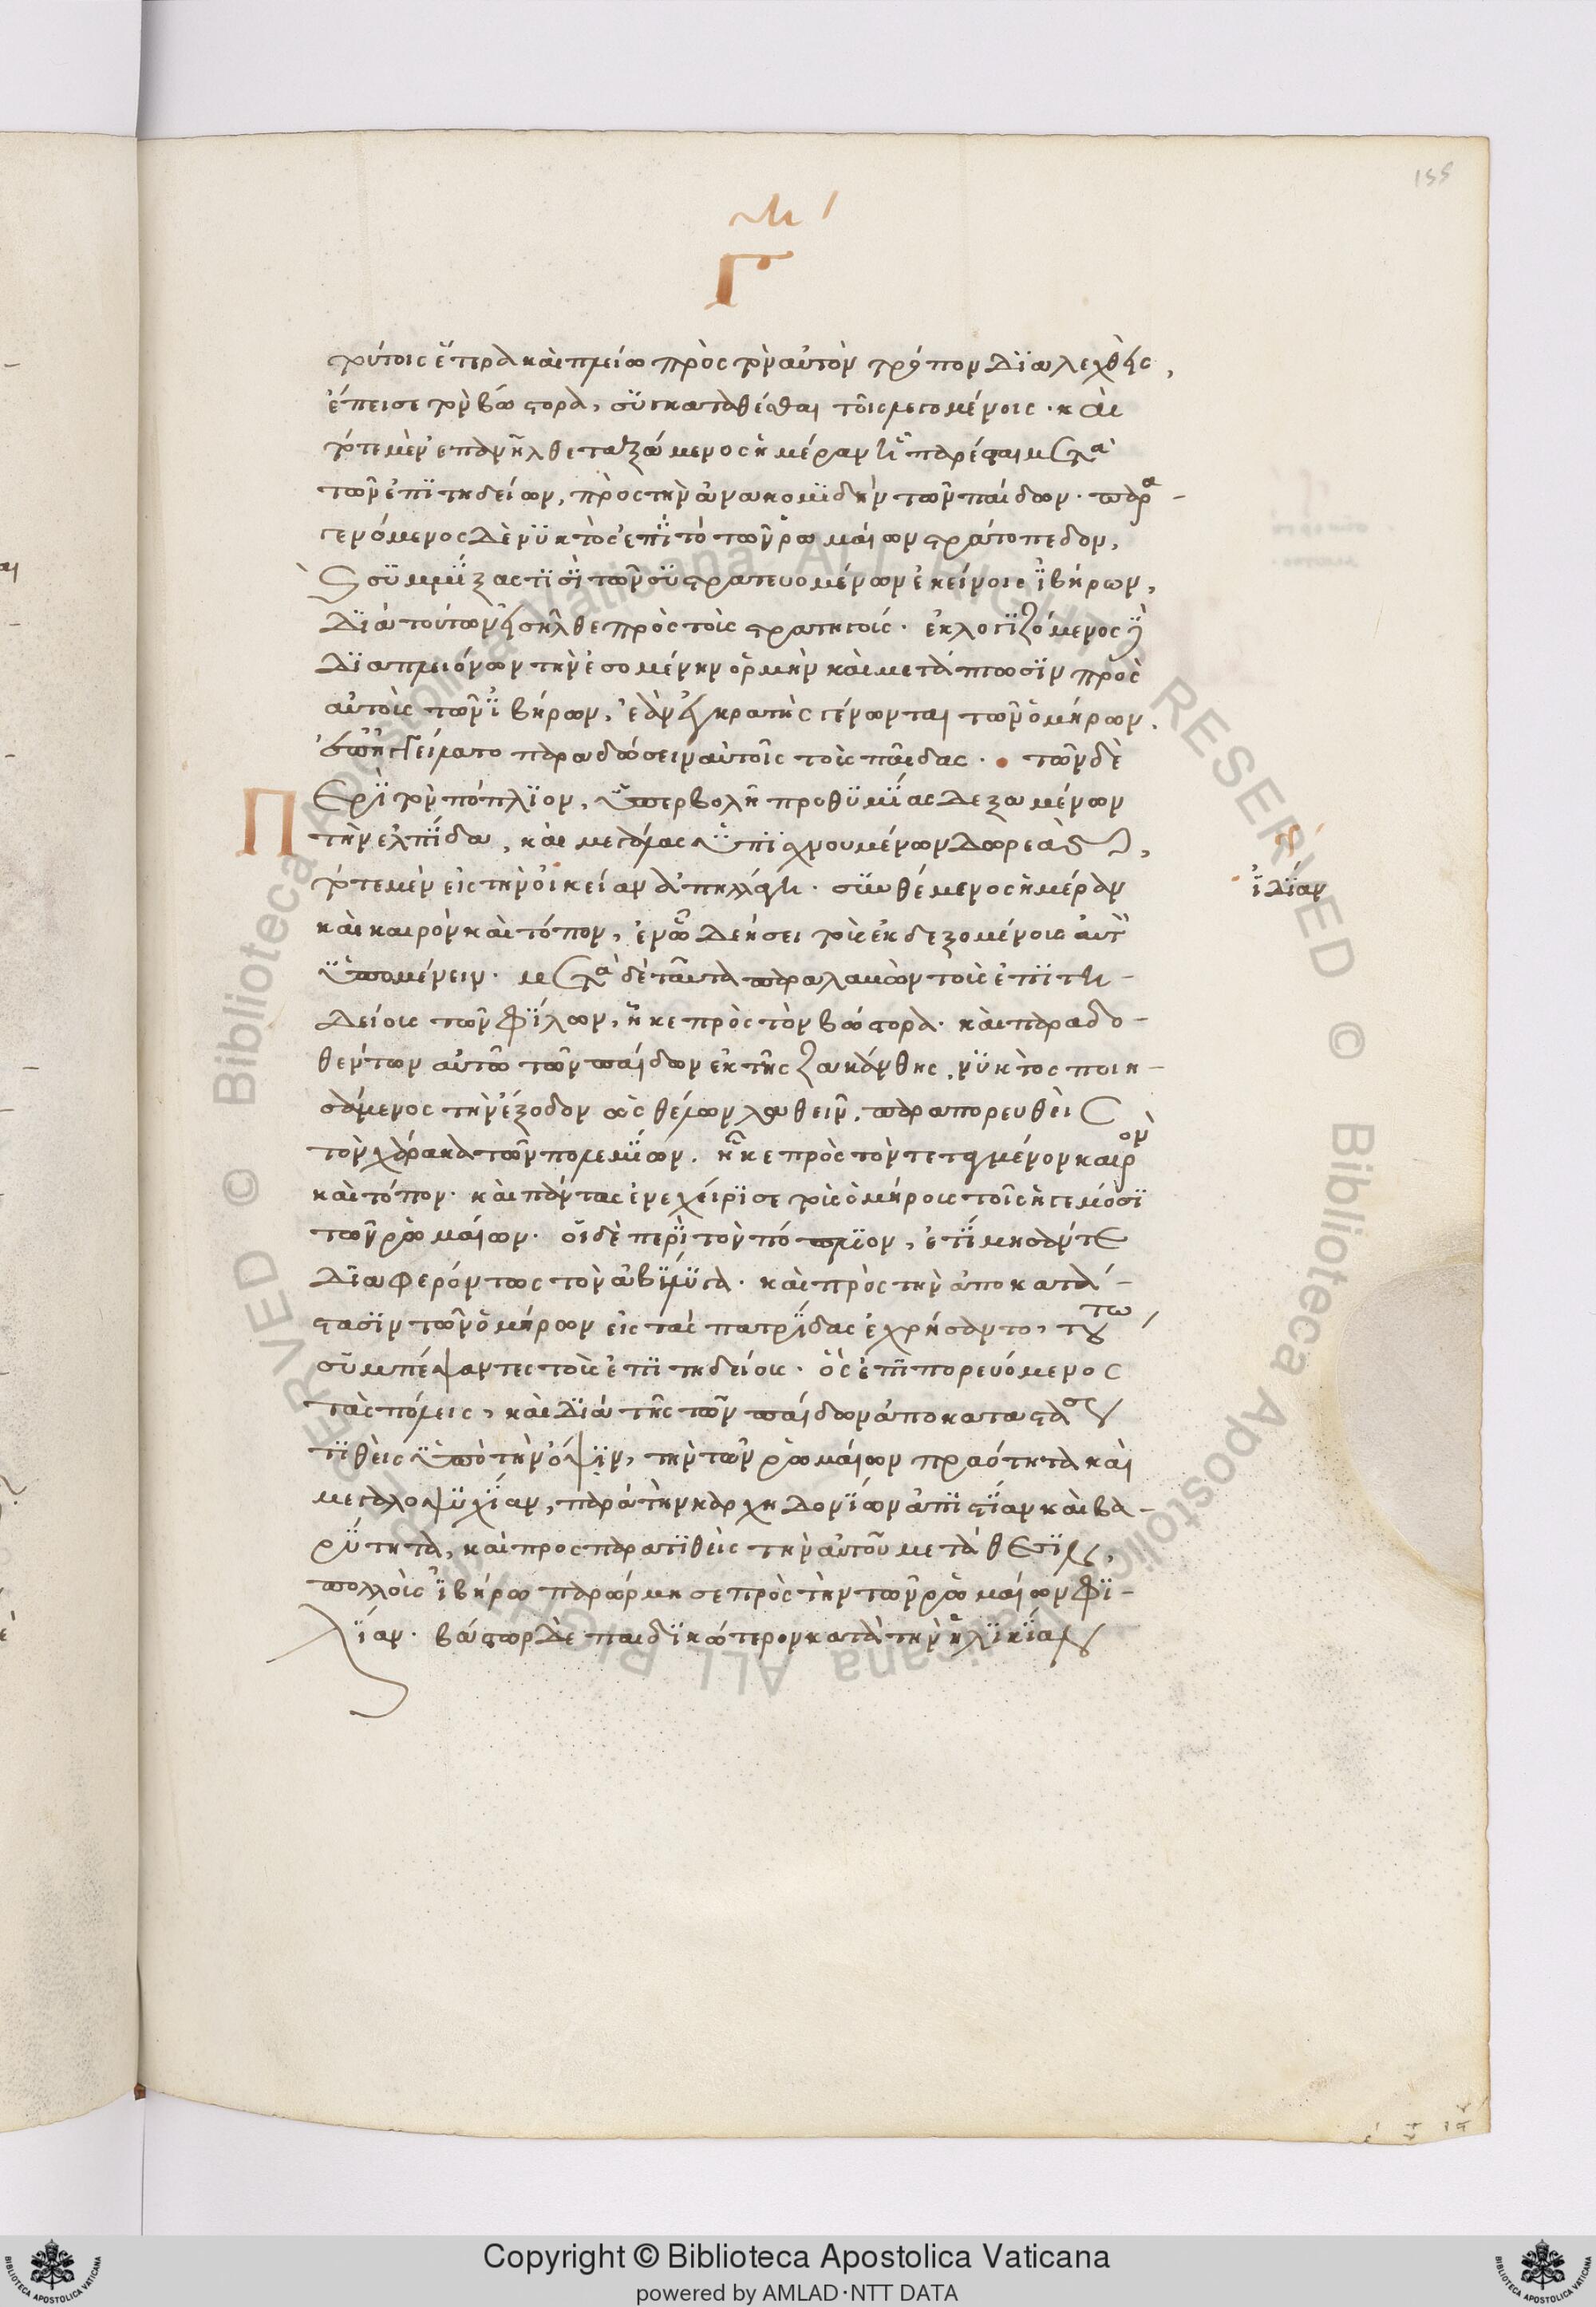 155
Γ
τούτοις ἕτερα καὶ πλείω πρὸς τὸν αὐτὸν τρόπον διαλεχθεὶς,
ἔπεισε τὸν βώστορα, συγκαταθέσθαι τοῖς λεγομένοις. καὶ
τότε μὲν ἐπανῆλθε ταξάμενος ἡμέραν ᾗ παρέσται μετὰ
τῶν ἐπιτηδείων, πρὸς τὴν ἀνακομιδὴν τῶν παίδων. παρα-
γενόμενος δὲ νυκτὸς ἐπὶ τὸ τῶν ῥωμαίων στρατόπεδον,
καὶ συμμίξας τισὶ τῶν συστρατευομένων ἐκείνοις ἰβήρων,
διὰ τούτων εἰσῆλθε πρὸς τοὺς στρατηγούς. ἐκλογιζόμενος δὲ
διὰ πλειόνων τὴν ἐσομένην ὁρμὴν καὶ μετάπτωσιν πρὸς
αὐτοὺς τῶν ἰβήρων, ἐὰν ἐγκρατεῖς γένωνται τῶν ὁμήρων.
ἐπηγγείλατο παραδώσειν αὐτοῖς τοὺς παῖδας. τῶν δὲ
Περὶ τὸν πόπλιον, ὑπερβολῇ προθυμίας δεξαμένων
τὴν ἐλπίδα, καὶ μεγάλας ὑπισχνουμένων δωρεὰς,
τότε μὲν εἰς τὴν οἰκείαν ἀπηλλάγη. συνθέμενος ἡμέραν
ἰδίαν
καὶ καιρὸν καὶ τόπον, ἐν ᾧ δεήσει τοὺς ἐκδεξομένους αὐτὸν
ὑπομένειν. μετὰ δὲ ταῦτα παραλαβὼν τοὺς ἐπιτη-
δείους τῶν φίλων, ἧκε πρὸς τὸν βώστορα. καὶ παραδο-
θέντων αὐτῷ τῶν παίδων ἐκ τῆς ζακάνθης, νυκτὸς ποιη-
σάμενος τὴν ἔξοδον ὡς θέλων λαθεῖν. παραπορευθεὶς
τὸν χάρακα τῶν πολεμίων. ἧκε πρὸς τὸν τεταγμένον καιρὸν
καὶ τόπον. καὶ πάντας ἐνεχείρισε τοὺς ὁμήρους τοῖς ἡγεμόσι
τῶν ῥωμαίων. οἱ δὲ περὶ τὸν πόπλιον, ἐτίμησάν τε
διαφερόντως τὸν ἀβίλυγα. καὶ πρὸς τὴν ἀποκατά-
στασιν τῶν ὁμήρων εἰς τὰς πατρίδας ἐχρήσαντο, τούτω
συμπέμψαντες τοὺς ἐπιτηδείους. ὃς ἐπιπορευόμενος
τὰς πόλεις, καὶ διὰ τῆς τῶν παίδων ἀποκαταστάσεως
τιθεὶς ὑπὸ τὴν ὄψιν, τὴν τῶν ῥωμαίων πραότητα καὶ
μεγαλοψυχίαν, παρὰ τὴν καρχηδονίων ἀπιστίαν καὶ βα-
ρύτητα, καὶ προσπαρατιθεὶς τὴν αὑτοῦ μετάθεσιν,
πολλοὺς ἰβήρω παρώρμησε πρὸς τὴν τῶν ῥωμαίων φι-
λίαν. βώστωρ δὲ παιδικώτερον κατὰ τὴν ἡλικίαν
Copyright © Biblioteca Apostolica Vaticana
powered by AMLAD·NTT DATA